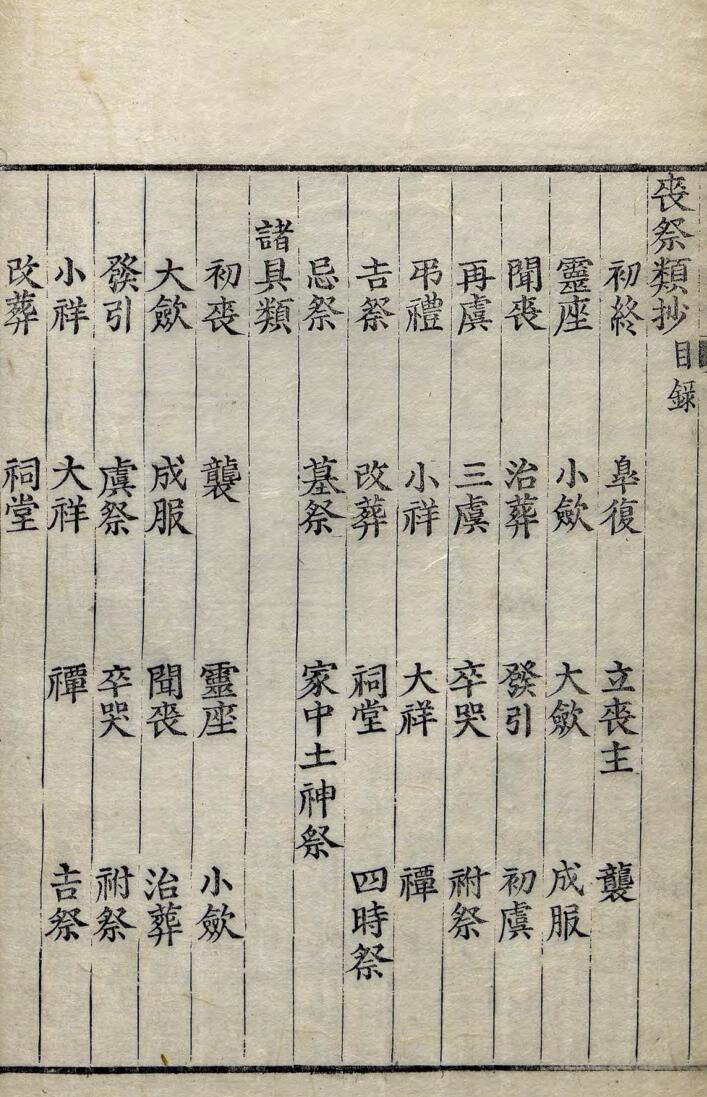 喪祭類抄目録
初終 皐復 立喪主 襲
靈座 小斂 大斂 成服
聞喪 治葬 發引 初虞
再虞 三虞 卒哭 祔祭
弔禮 小祥 大祥 禫
吉祭 改葬 祠堂 四時祭
忌祭 墓祭 家中土神祭
諸具類
初喪 襲 靈座 小斂
大斂 成服 聞喪 治葬
發引 虞祭 卒哭 祔祭
小祥 大祥 禫 吉祭
改葬 祠堂